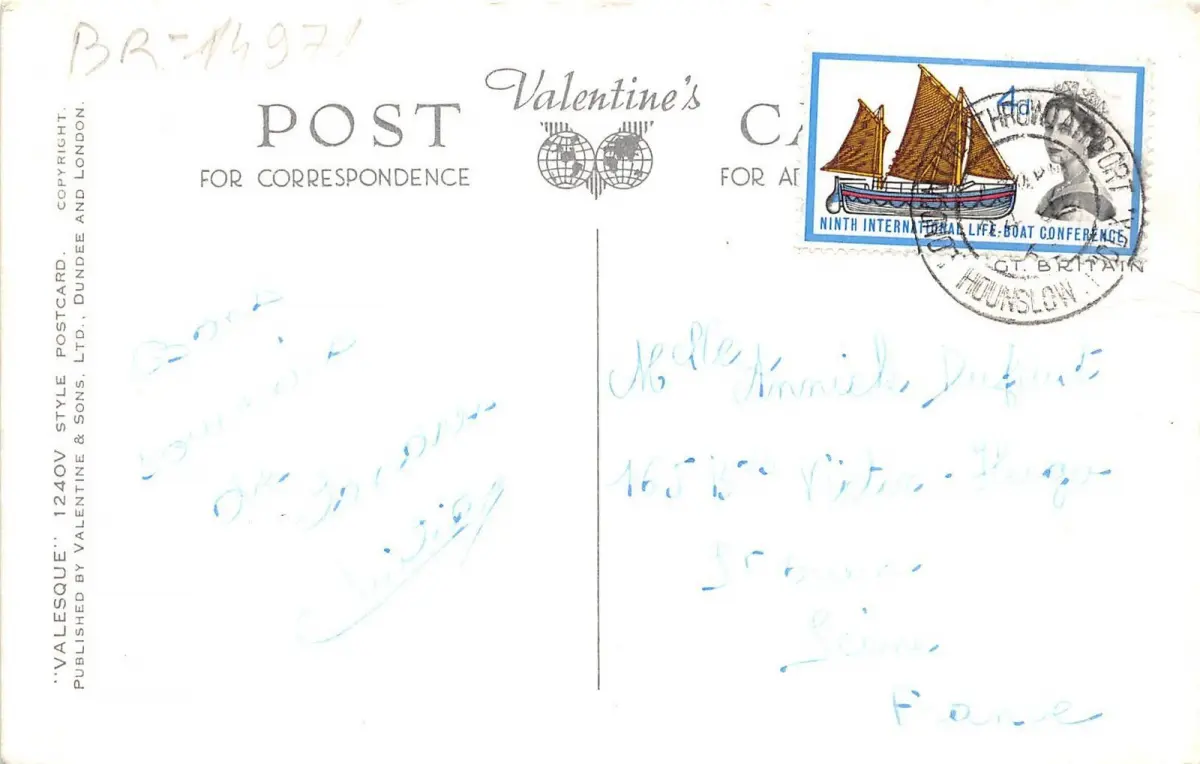 BR-14971
Valentine's
POST CA
FOR CORRESPONDENCE
FOR AD
4d
NINTH INTERNATIONAL LIFE-BOAT CONFERENCE
AIRPORT
HOUNSLOW
GT. BRITAIN
"VALESQUE" 1240V STYLE POSTCARD. COPYRIGHT.
PUBLISHED BY VALENTINE & SONS, LTD., DUNDEE AND LONDON.
Bons
souvenirs
Melle Annick
165 Victor-Hugo
St
Seine
France